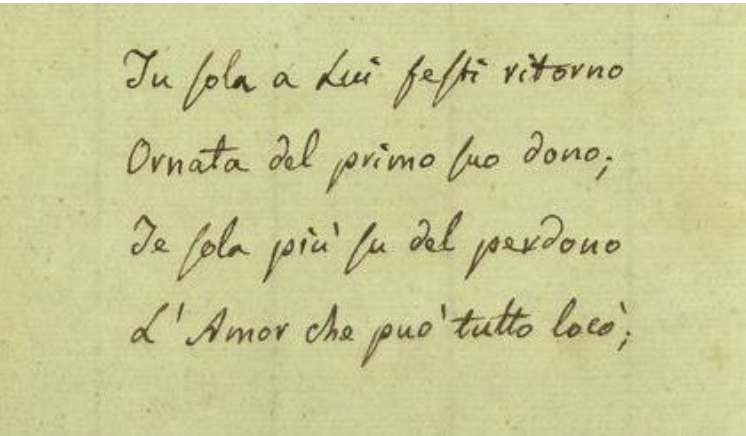 Tu sola a Lui festi ritorno
Ornata del primo suo dono;
Te sola più su del perdono
L'Amor che può tutto locò;